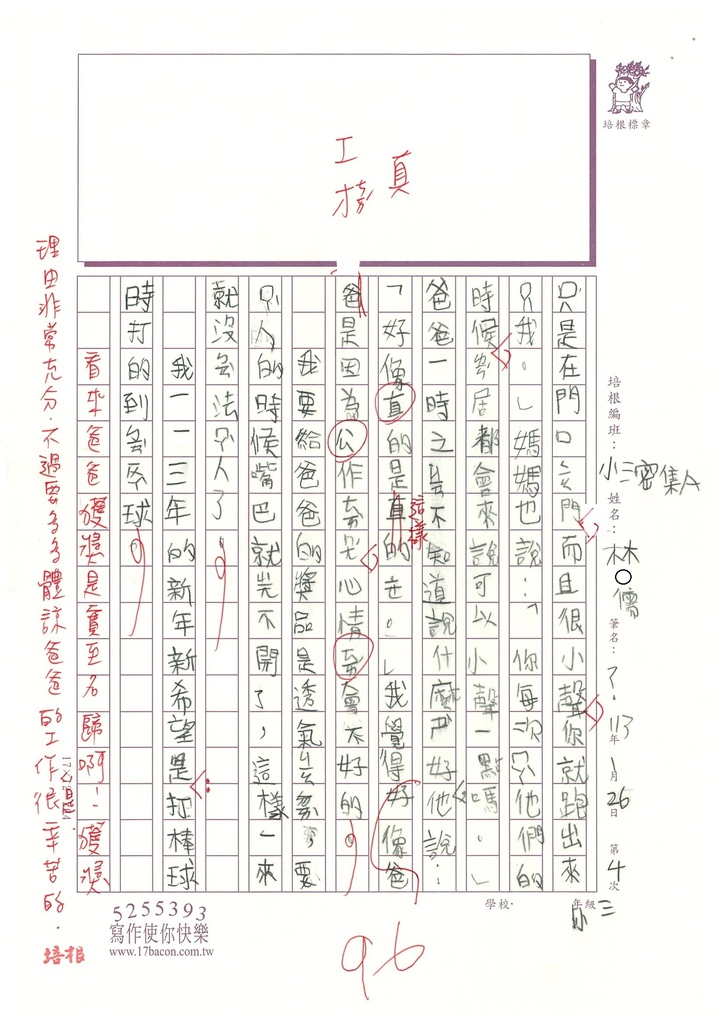 培根標章
工榜
真
培根編班：小三密集A 姓名：林○儒 筆名：了．113年1月26日 第4次
學校． 年級 小三
只是在門口ㄍ門而且很小聲你就跑出來
只我。」媽媽也說：「你每次只他們的
時候鄰居都會來說可以小聲一點嗎。」
爸爸一時之ㄐ不知道說什麼ㄕ好他說：
「好像真的是直的ㄜ。」我覺得好像爸
這樣
爸是因為公作ㄊ心情ㄊ會不好的，
我要給爸爸的獎品是透氣ㄠㄓㄠ，要
只人的時候嘴巴就ㄓ不開了，這樣一來
就沒ㄅ法只人了。
我一一三年的新年新希望是打棒球
時打的到ㄅ球。
看來爸爸獲獎是實至名歸啊！獲獎
理由非常充分．不過要多多體諒爸爸的工作很辛苦的．
培根
96
5255393
寫作使你快樂
www.17bacon.com.tw